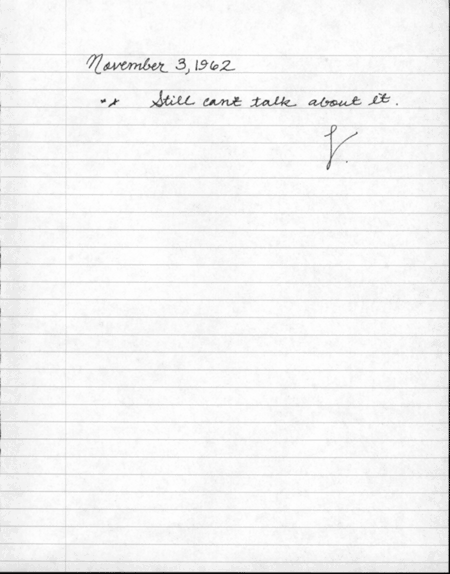 November 3, 1962
** Still can't talk about it.
V.